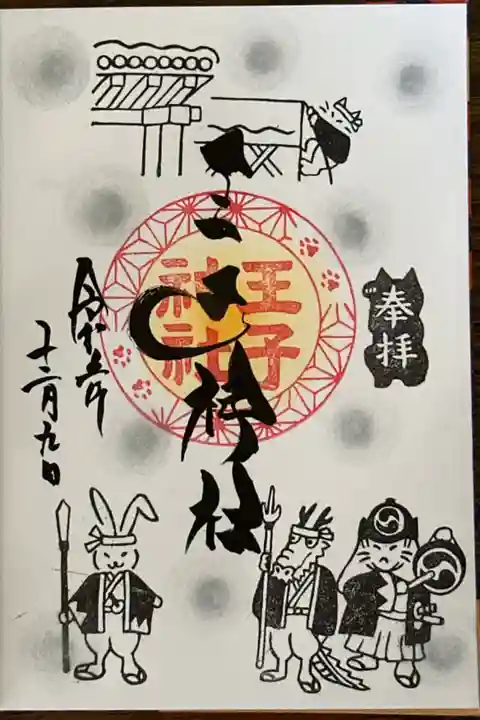 奉拝
王子
神社
王子神社
令和五年
十二月九日